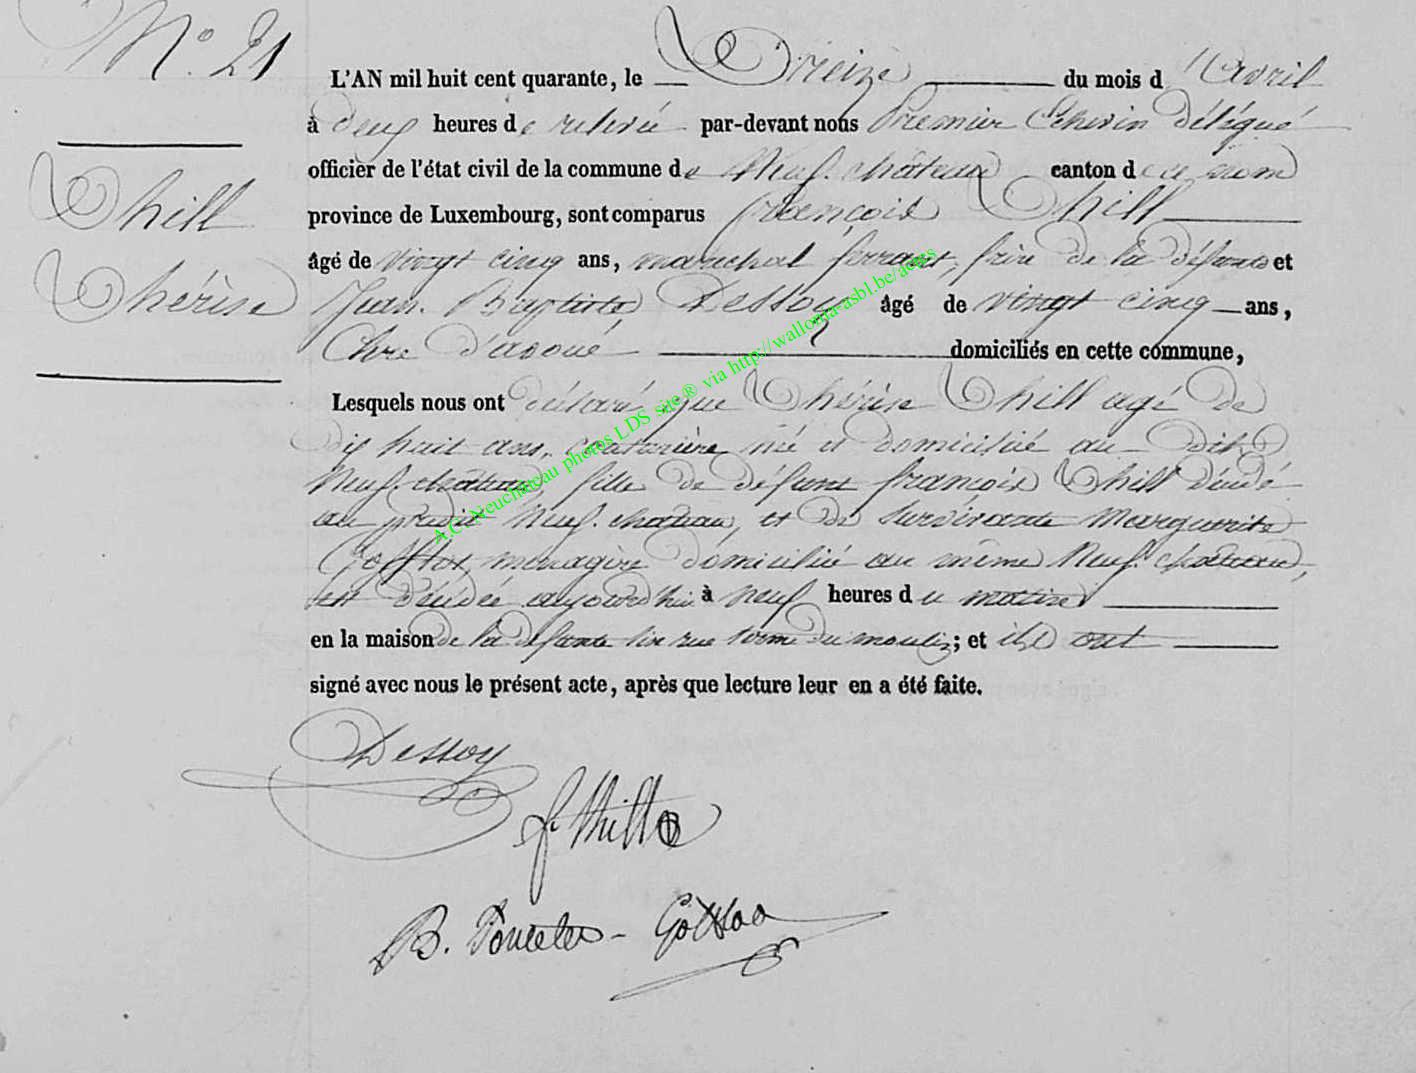 N.° 21
L'AN mil huit cent quarante, le treize du mois d'avril
à deux heures de relevée par-devant nous Premier Echevin délégué
officier de l'état civil de la commune de Neufchâteau canton de ce nom
province de Luxembourg, sont comparus françois Thill
Thill
âgé de vingt cinq ans, maréchal ferrant, frère de la défunte et
Thérèse
Jean Baptiste Dessoy âgé de vingt cinq ans,
Clerc d'avoué domiciliés en cette commune,
Lesquels nous ont déclaré que Thérèse Thill agé de
dix huit ans, couturière né et domicilié au dit
Neufchâteau, fille de défunt françois Thill décédé
au prédit Neufchateau, et de survivante Marguerite
ménagère domicilié au même Neufchateau,
est décédée aujourd'hui à neuf heures du matin
en la maison de la défunte sise rue du moulin; et ils ont
signé avec nous le présent acte, après que lecture leur en a été faite.
Dessoy
f. Thill
B. Poncelet - Gofflot
A.C. Neuchateau photos LDS site ® via http://wallonia-asbl.be/actes